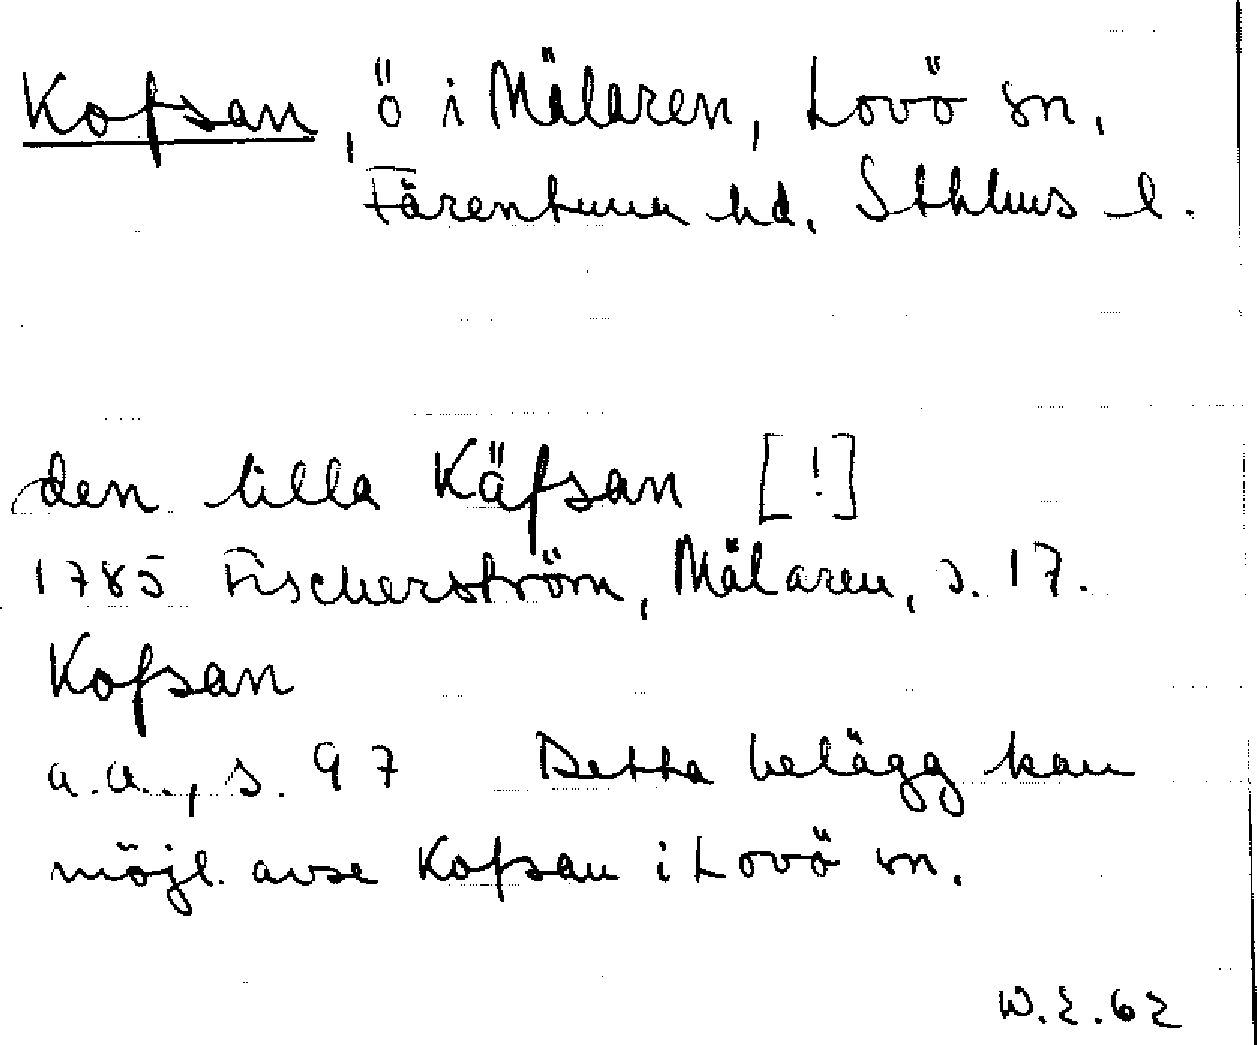 Kofsan, ö i Mälaren, Lovö sn,
Färentuna hd, Sthlms l.
den lilla Käfsan [!]
1785 Fischerström, Mälaren, s. 17.
Kofsan
a.a., s. 97 Detta belägg kan
möjl. avse Kofsan i Lovö sn.
W.E.62